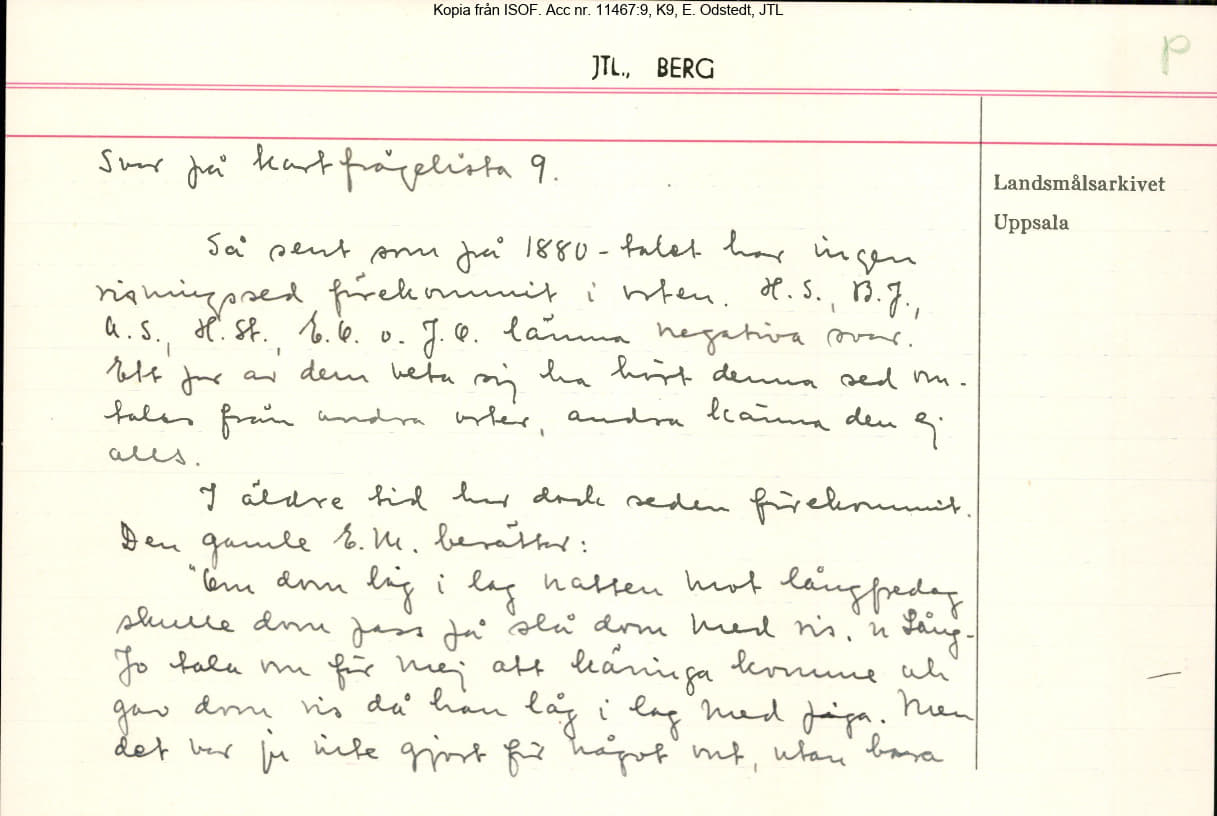 Kopia från ISOF. Acc nr. 11467:9, K9, E. Odstedt, JTL
JTL., BERG
P
Svar på kartfrågelista 9.
Landsmålsarkivet
Uppsala
Så sent som på 1880-talet har ingen
risningssed förekommit i orten. H.S., B.J.,
A.S., H.St., E.O. o. J.O. lämna negativa svar.
Ett par av dem veta sig ha hört denna sed om-
talas från andra orter, andra känna den ej
alls.
I äldre tid har dock seden förekommit.
Den gamle E.M. berättar:
"Om dom låg i lag natten mot långfredag
skulle dom pass på slå dom med ris. n Lång-
Jo tala om för mej att käringa komme uh
gav dom ris då han låg i lag med piga. Men
det var ju inte gjort för något ont, utan bara